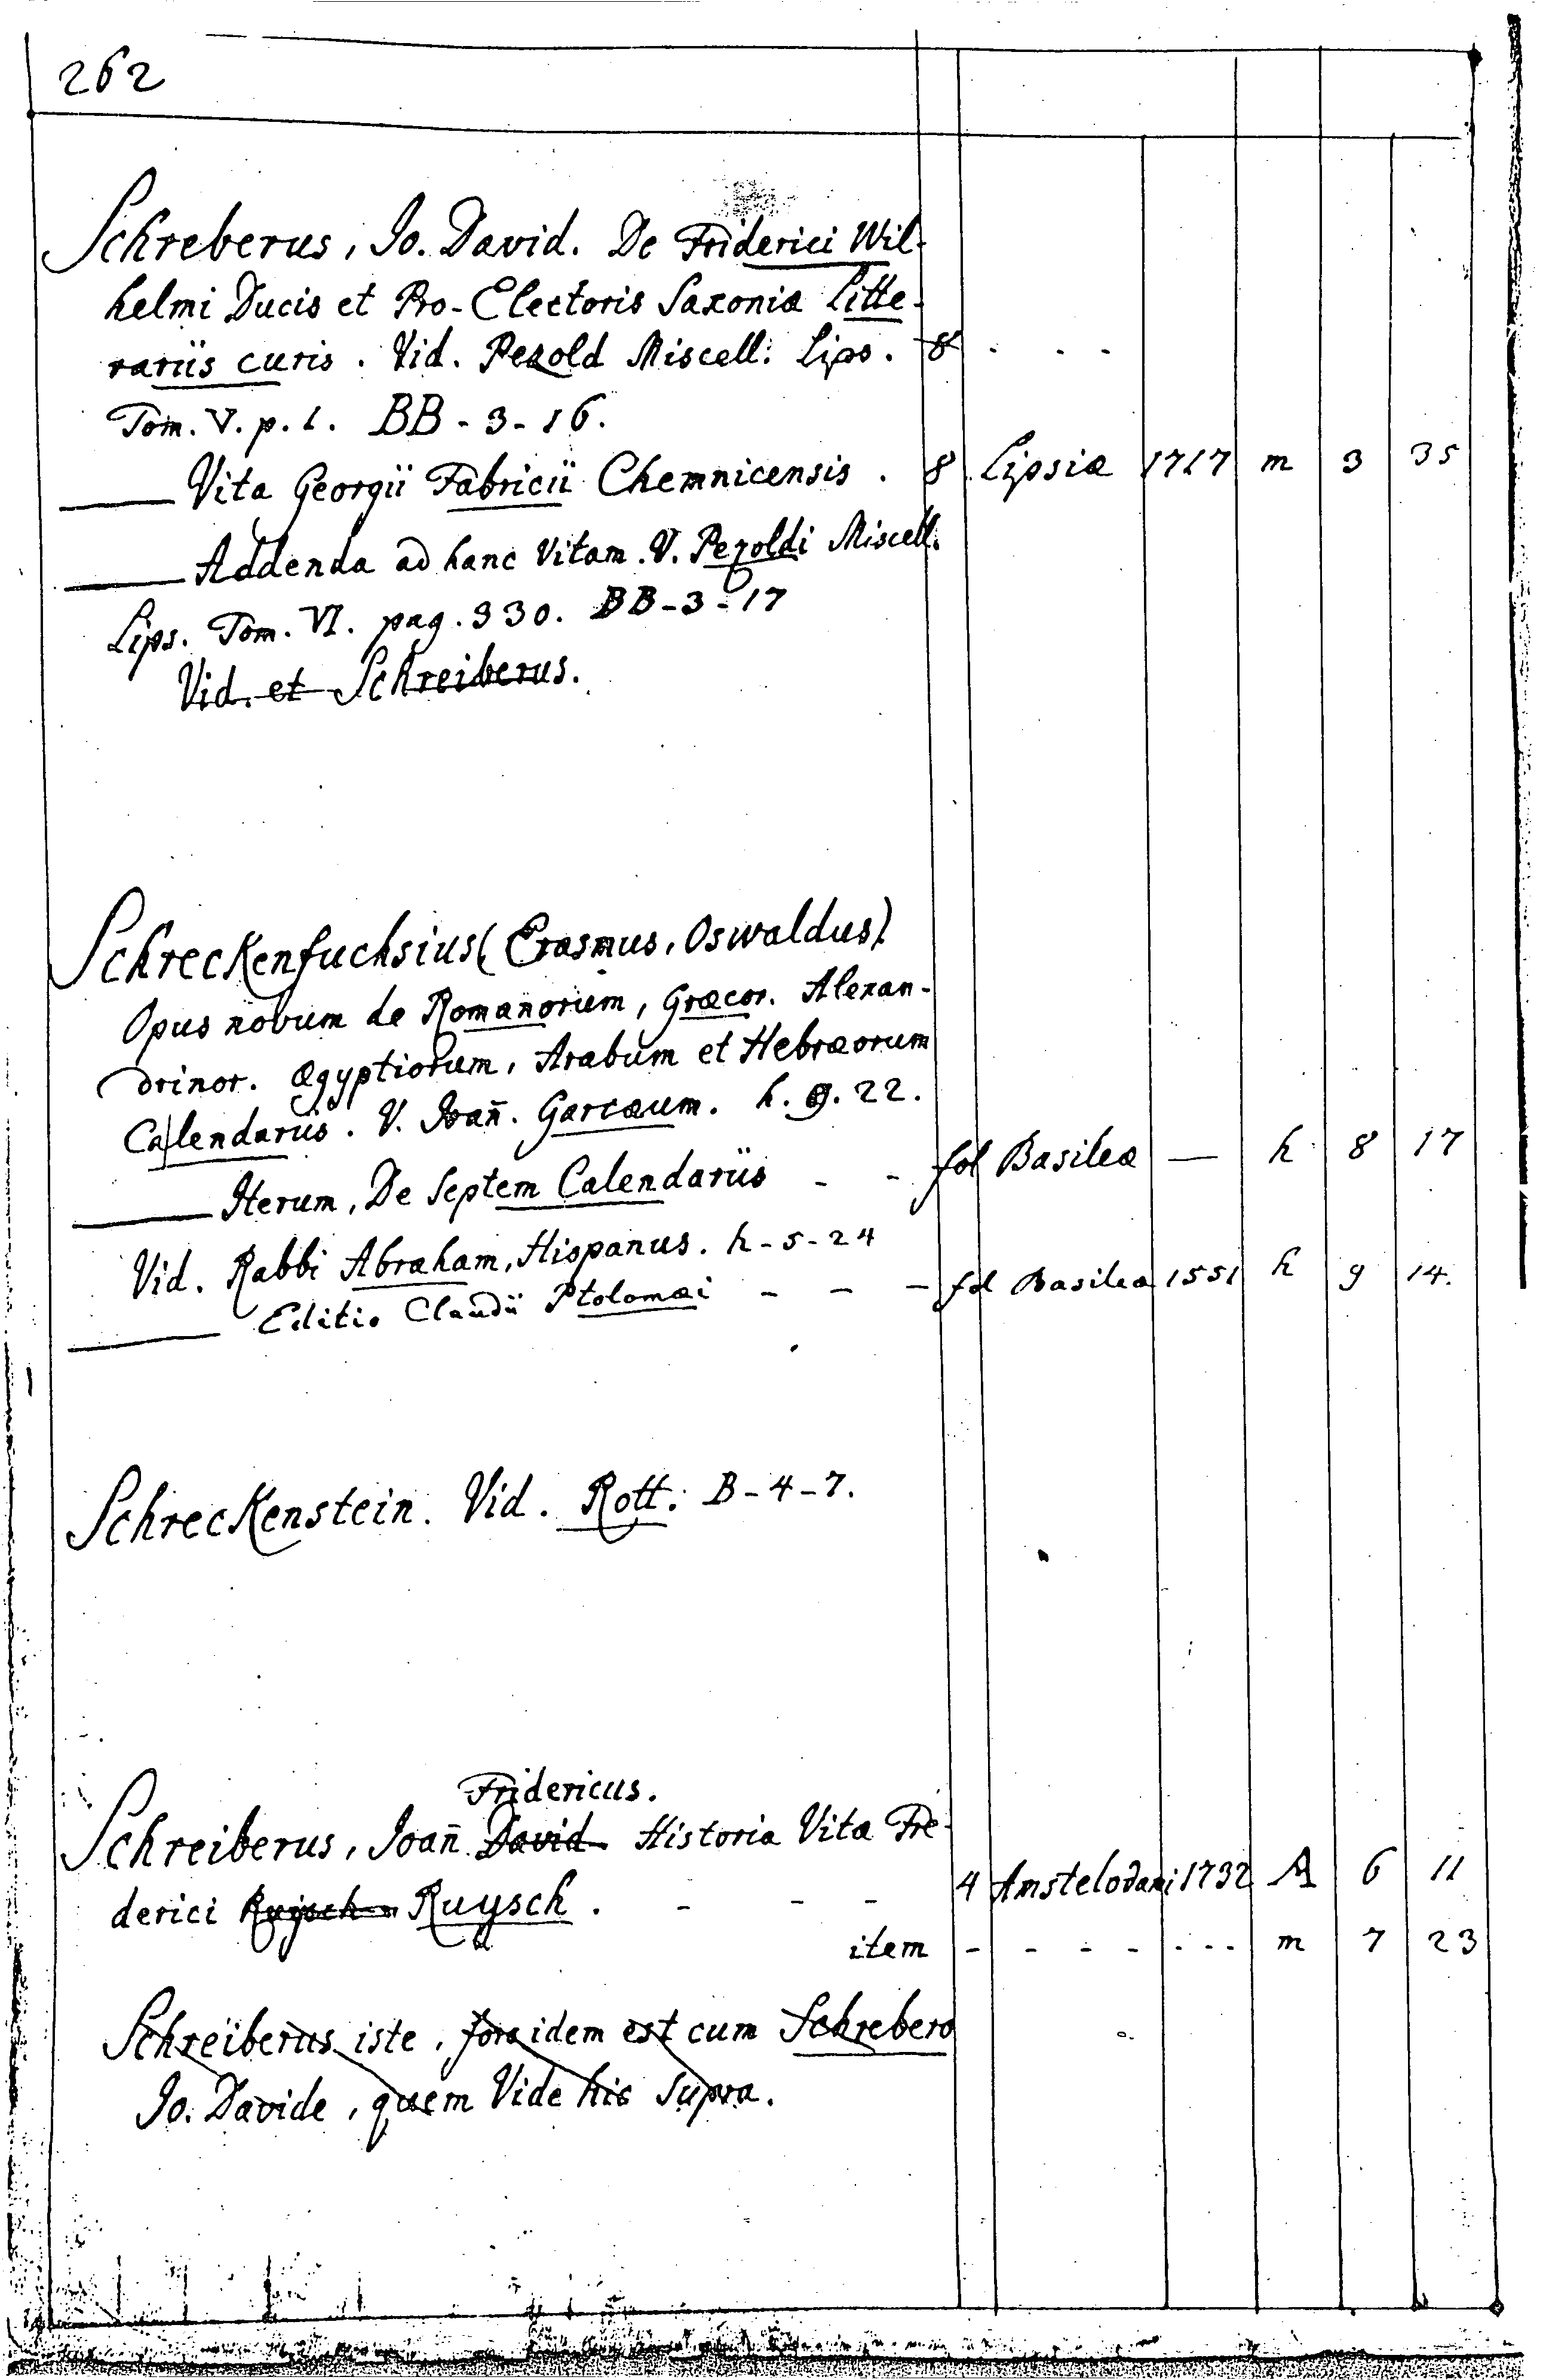 262
Schreberus, Jo. David. De Friderici Wil-
helmi Ducis et Pro-Electoris Saxoniæ Litte-
rariis curis. Vid. Pezold Miscell. Lips. 8 . . .
Tom. V. p. 1. BB-3-16.
—— Vita Georgii Fabricii Chemnicensis . 8 Lipsiæ 1717 m 3 35
—— Addenda ad hanc Vitam. V. Pezoldi Miscell.
Lips. Tom. VI. pag. 330. BB-3-17
Vid. et Schreiberus.
Schreckenfuchsius (Erasmus, Oswaldus)
Opus novum de Romanorum, Græcor. Alexan-
drinor. Ægyptiorum, Arabum et Hebræorum
Calendariis. V. Joan̄. Garcæum. h. 9. 22.
—— Iterum, De Septem Calendariis - - fol Basileæ — h 8 17
Vid. Rabbi Abraham, Hispanus. h-5-24
—— Editio Claudii Ptolomæi - - - fol Basileæ 1551 h 9 14.
Schreckenstein. Vid. Rott. B-4-7.
Fridericus.
Schreiberus, Joan̄ David Historia Vitæ Fre-
derici Ruysch Ruysch . - - - 4 Amstelodami 1732 A 6 11
item - - - - - - - m 7 23
Schreiberus iste, fors idem est cum Schrebero
Jo. Davide, quem Vide hic supra.